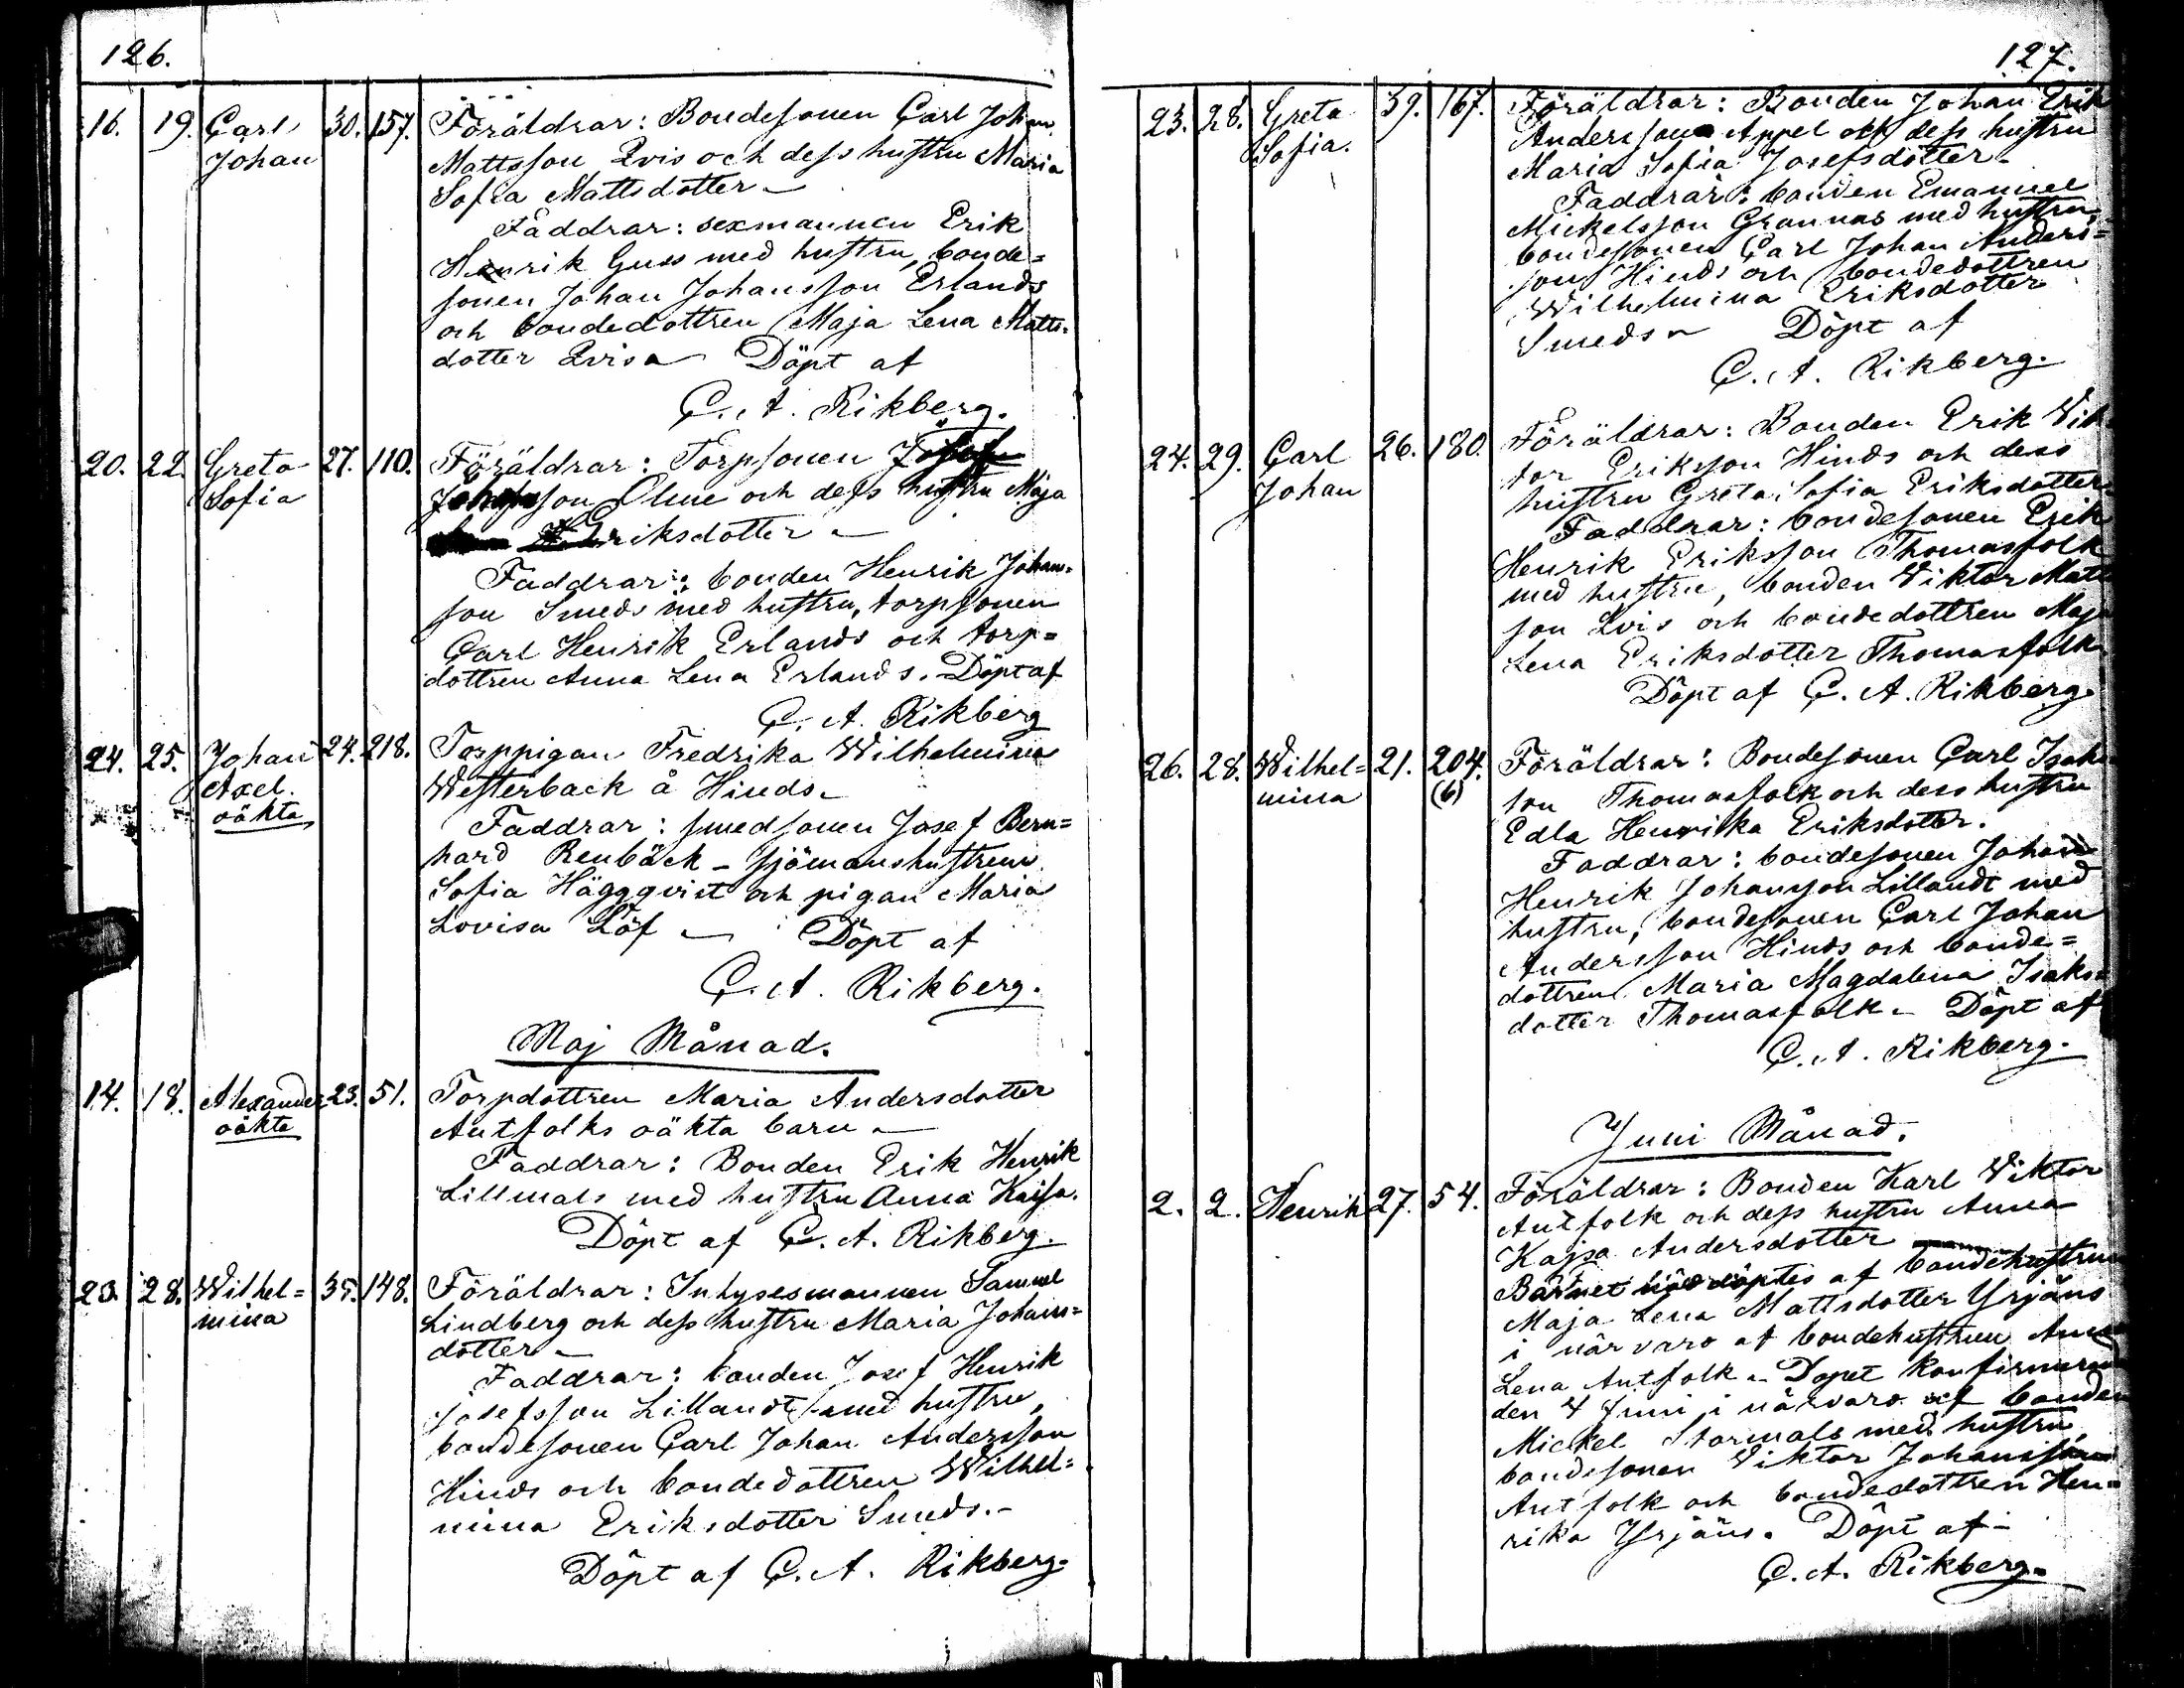 126.
16. 19. Carl 30. 157. Föräldrar: Bondesonen Carl Johan
Johan Mattsson Qvis och dess hustru Maria
Sofia Mattsdotter –
Faddrar: sexmannen Erik
Henrik Guss med hustru, bonde=
sonen Johan Johansson Erlands
och bondedottren Maja Lena Matts=
dotter Qvis – Döpt af
C. A. Rikberg.
20. 22. Greta 27. 110. Föräldrar: Torpsonen
Sofia Olme och dess hustru Maja
Eriksdotter –
Faddrar: bonden Henrik Johans=
son Smeds med hustru, torpsonen
Carl Henrik Erlands och torp=
dottren Anna Lena Erlands. Döpt af
C. A. Rikberg
24. 25. Johan 24. 218. Torppigan Fredrika Wilhelmina
Axel. Westerback å Hinds –
oäkta
Faddrar: smedsonen Josef Bern=
hard Renbäck – sjömanshustrun
Sofia Häggqvist och pigan Maria
Lovisa Löf – Döpt af
C. A. Rikberg.
Maj Månad.
14. 18. Alexander 23. 51. Torpdottren Maria Andersdotter
oäkta Antfolks oäkta barn –
Faddrar: Bonden Erik Henrik
Lillmals med hustru Anna Kaisa.
Döpt af C. A. Rikberg.
23. 28. Wilhel= 35. 148. Föräldrar: Inhysesmannen Samuel
mina Lindberg och dess hustru Maria Johans=
dotter –
Faddrar: bonden Josef Henrik
Josefsson Lillandt med hustru,
bondesonen Carl Johan Andersson
Hinds och bondedottren Wilhel=
mina Eriksdotter Smeds. –
Döpt af C. A. Rikberg.
127.
23. 28. Greta 39. 167. Föräldrar: Bonden Johan Erik
Sofia. Andersson Appel och dess hustru
Maria Sofia Josefsdotter –
Faddrar: bonden Emanuel
Mickelsson Grannas med hustru,
bondesonen Carl Johan Anders=
son Hinds och bondedottren
Wilhelmina Eriksdotter
Smeds – Döpt af
C. A. Rikberg.
24. 29. Carl 26. 180. Föräldrar: Bonden Erik Vik
Johan tor Eriksson Hinds och dess
hustru Greta Sofia Eriksdotter
Faddrar: bondesonen Erik
Henrik Eriksson Thomasfolk
med hustru, bonden Viktor Matts
son Qvis och bondedottren Maja
Lena Eriksdotter Thomasfolk
Döpt af C. A. Rikberg.
26. 28. Wilhel= 21. 204. Föräldrar: Bondesonen Carl Isaks
mina (6) son Thomasfolk och dess hustru
Edla Henrika Eriksdotter.
Faddrar: bondesonen Johan
Henrik Johansson Lillandt med
hustru, bondesonen Carl Johan
Andersson Hinds och bonde=
dottren Maria Magdalena Isaks=
dotter Thomasfolk – Döpt af
C. A. Rikberg.
Juni Månad.
2. 2. Henrik 27. 54. Föräldrar: Bonden Karl Viktor
Antfolk och dess hustru Anna
Kajsa Andersdotter
Barnet nöddöptes af bondehustrun
Maja Lena Mattsdotter Yrjäns
i närvaro af bondehustrun Anna
Lena Antfolk – Dopet konfirmerad
den 4 Juni i närvaro af bonden
Mickel Stormals med hustru,
bondesonen Viktor Johansson
Antfolk och bondedottren Hen=
rika Yrjäns. Döpt af –
C. A. Rikberg.